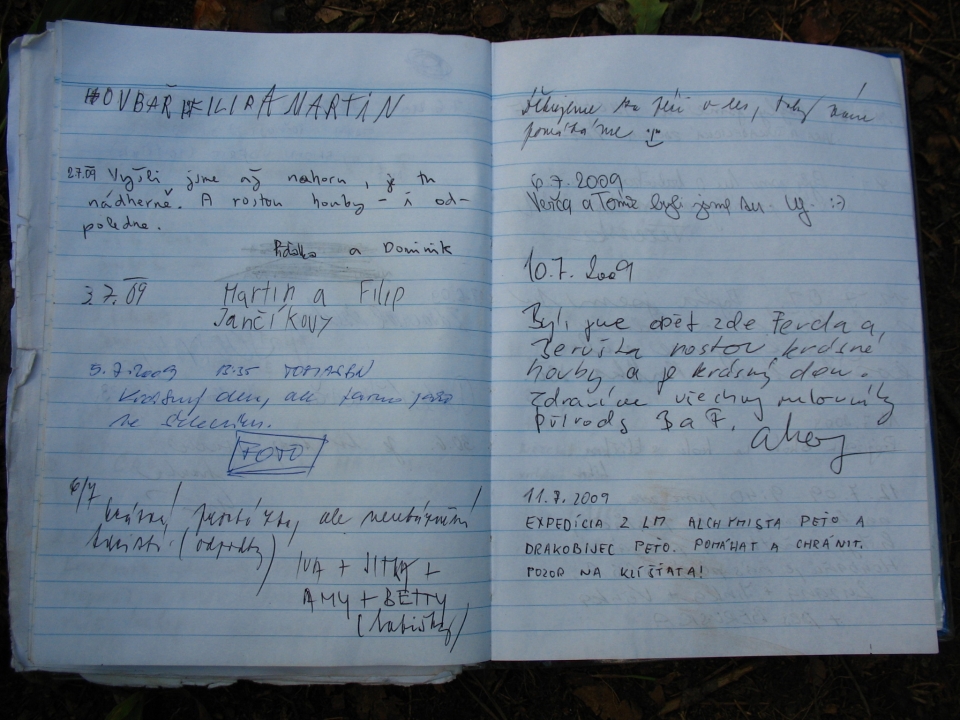 HOVBAŘ FILIP A MARTIN
27.09 Vyšli jsme až nahoru, je tu
nádherně. A rostou houby – i od-
poledne.
a Dominik
3.7.09 Martin a Filip
Jančíkovy
5.7.2009
Krásný den, ale
FOTO
6/7
ale
turisti (odpadky)
IVA + JITKA +
AMY + BETTY
Děkujeme za péči o les, taky
pomáháme
6.7.2009
Verča a Tomáš byli jsme tu. :-)
10.7. 2009
Byli jsme opět zde Ferda a
Beruška rostou krásné
houby a je krásný den.
Zdravíme všechny milovníky
přírody B a F.
ahoj
11.7.2009
EXPEDÍCIA Z LM ALCHYMISTA PEŤO A
DRAKOBIJEC PEŤO. POMÁHAT A CHRÁNIT.
POZOR NA KLÍŠŤATA!